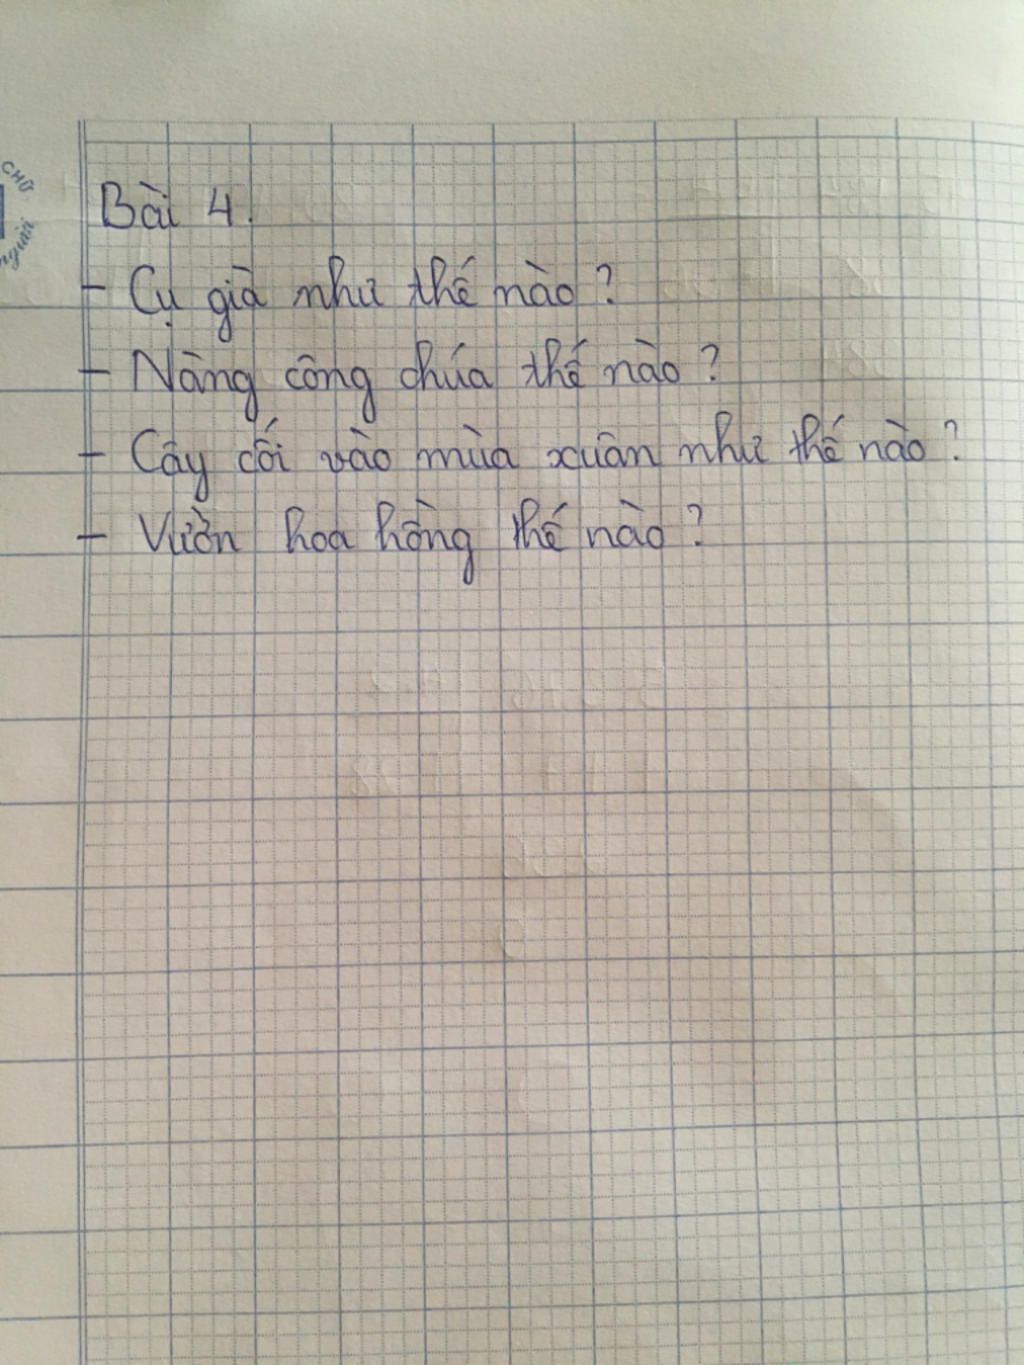 CHỮ
người
Bài 4.
- Cụ già như thế nào?
- Nàng công chúa thế nào?
- Cây cối vào mùa xuân như thế nào?
- Vườn hoa hồng thế nào?